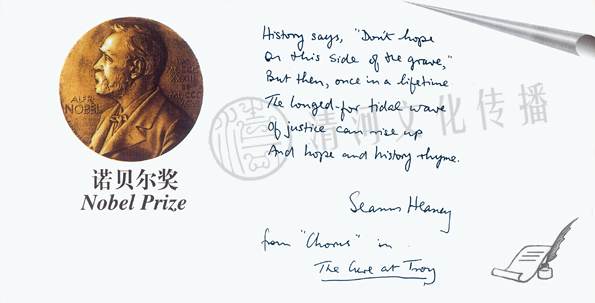 History says, "Don't hope
On this side of the grave,"
But then, once in a lifetime
The longed-for tidal wave
Of justice can rise up
And hope and history rhyme.
Seamus Heaney
from "Chorus" in
The Cure at Troy
NOBEL
诺贝尔奖
Nobel Prize
文化传播